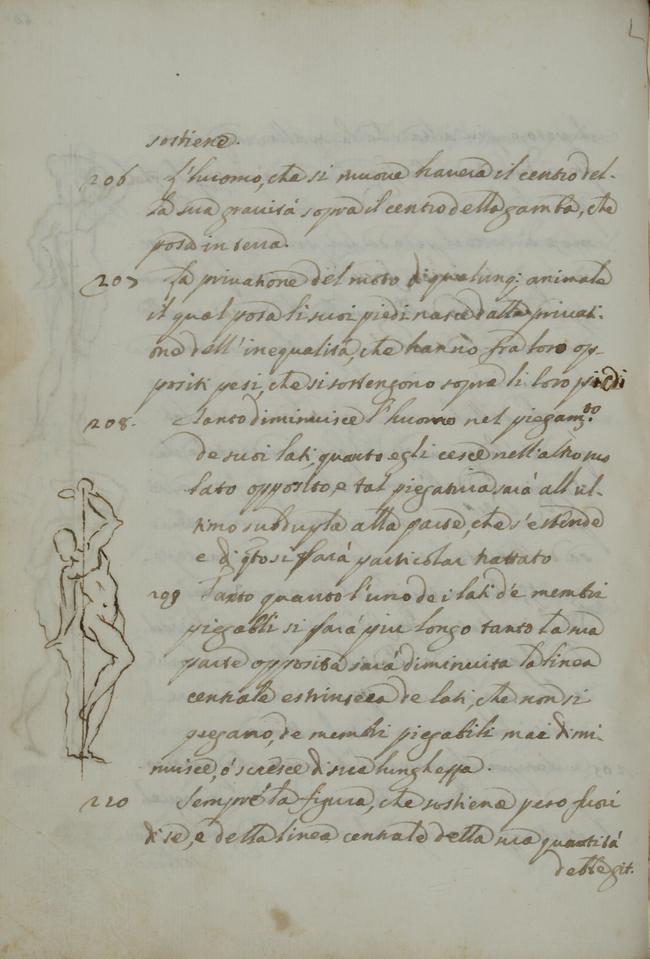 sostiene.
206 L'huomo, che si muove haverà il centro del-
la sua gravità sopra il centro della gamba, che
posa in terra.
207 La privatione del moto di qualunq: animale
il qual posa li suoi piedi nasce dalla privati-
one dell'inequalità, che hanno fra loro op-
positi pesi, che si sostengono sopra li loro piedi
208. Tanto diminuisce l'huomo nel piegam.to
de suoi lati, quanto egli cresce nell'altro suo
lato opposito, e tal piegatura sarà all'ul-
timo subdupla alla parte, che s'estende
e di q̃to si farà particolar trattato
209 Tanto quanto l'uno de i lati de membri
piegabili si farà piu longo tanto la sua
parte opposita sarà diminuita la linea
centrale estrinseca de lati, che non si
piegano, de membri piegabili mai dimi-
nuisce, ò scresce di sua lunghezza.
210 Sempre la figura, che sostiene peso fuori
di se, e della linea centrale della sua quantità
debbe git.